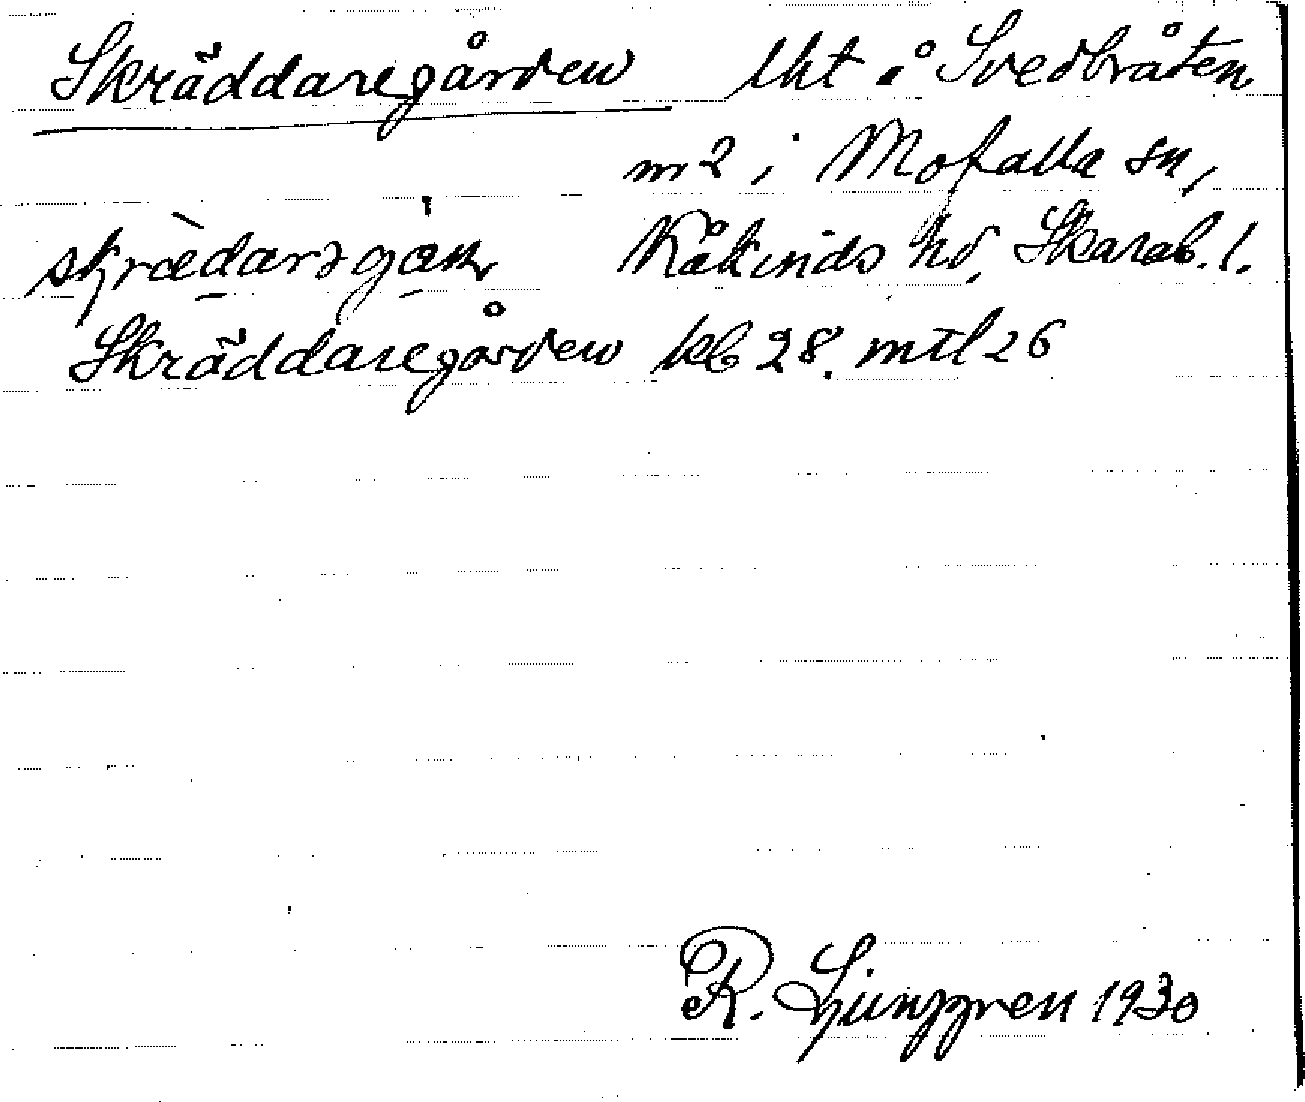 Skräddaregården lht å Svedbråten
m 2 i Mofalla sn,
Kåkinds hd, Skarab. l.
Skräddaregården kb 28. mtl 26
R. Ljunggren 1930